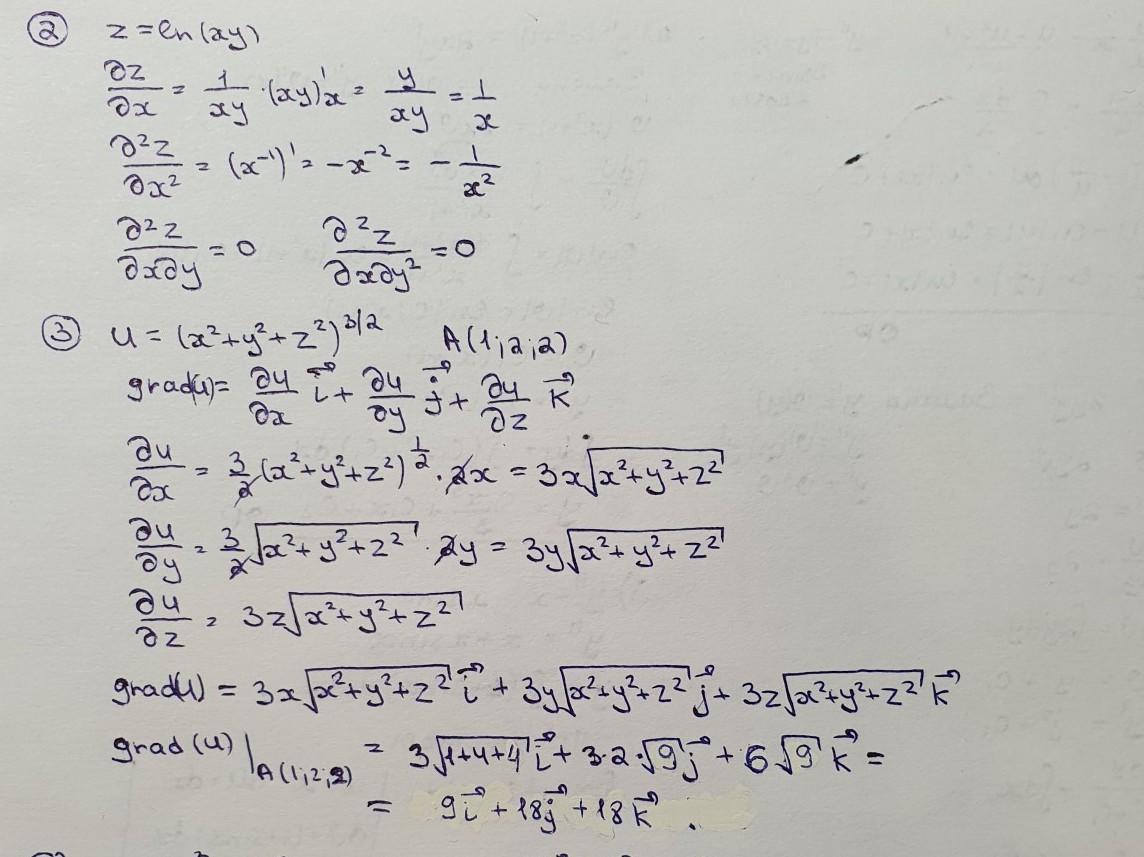 ② z = ln(xy)
∂z/∂x = 1/xy · (xy)'x = y/xy = 1/x
∂²z/∂x² = (x⁻¹)' = -x⁻² = -1/x²
∂²z/∂x∂y = 0    ∂²z/∂x∂y² = 0
③ u = (x²+y²+z²)^3/2    A(1;2;2)
grad(u) = ∂u/∂x i⃗ + ∂u/∂y j⃗ + ∂u/∂z k⃗
∂u/∂x = 3/2 (x²+y²+z²)^1/2 · 2x = 3x√(x²+y²+z²)
∂u/∂y = 3/2 √(x²+y²+z²) · 2y = 3y√(x²+y²+z²)
∂u/∂z = 3z√(x²+y²+z²)
grad(u) = 3x√(x²+y²+z²) i⃗ + 3y√(x²+y²+z²) j⃗ + 3z√(x²+y²+z²) k⃗
grad(u)|A(1;2;2) = 3√(1+4+4) i⃗ + 3·2·√9 j⃗ + 6√9 k⃗ =
= 9i⃗ + 18j⃗ + 18k⃗.